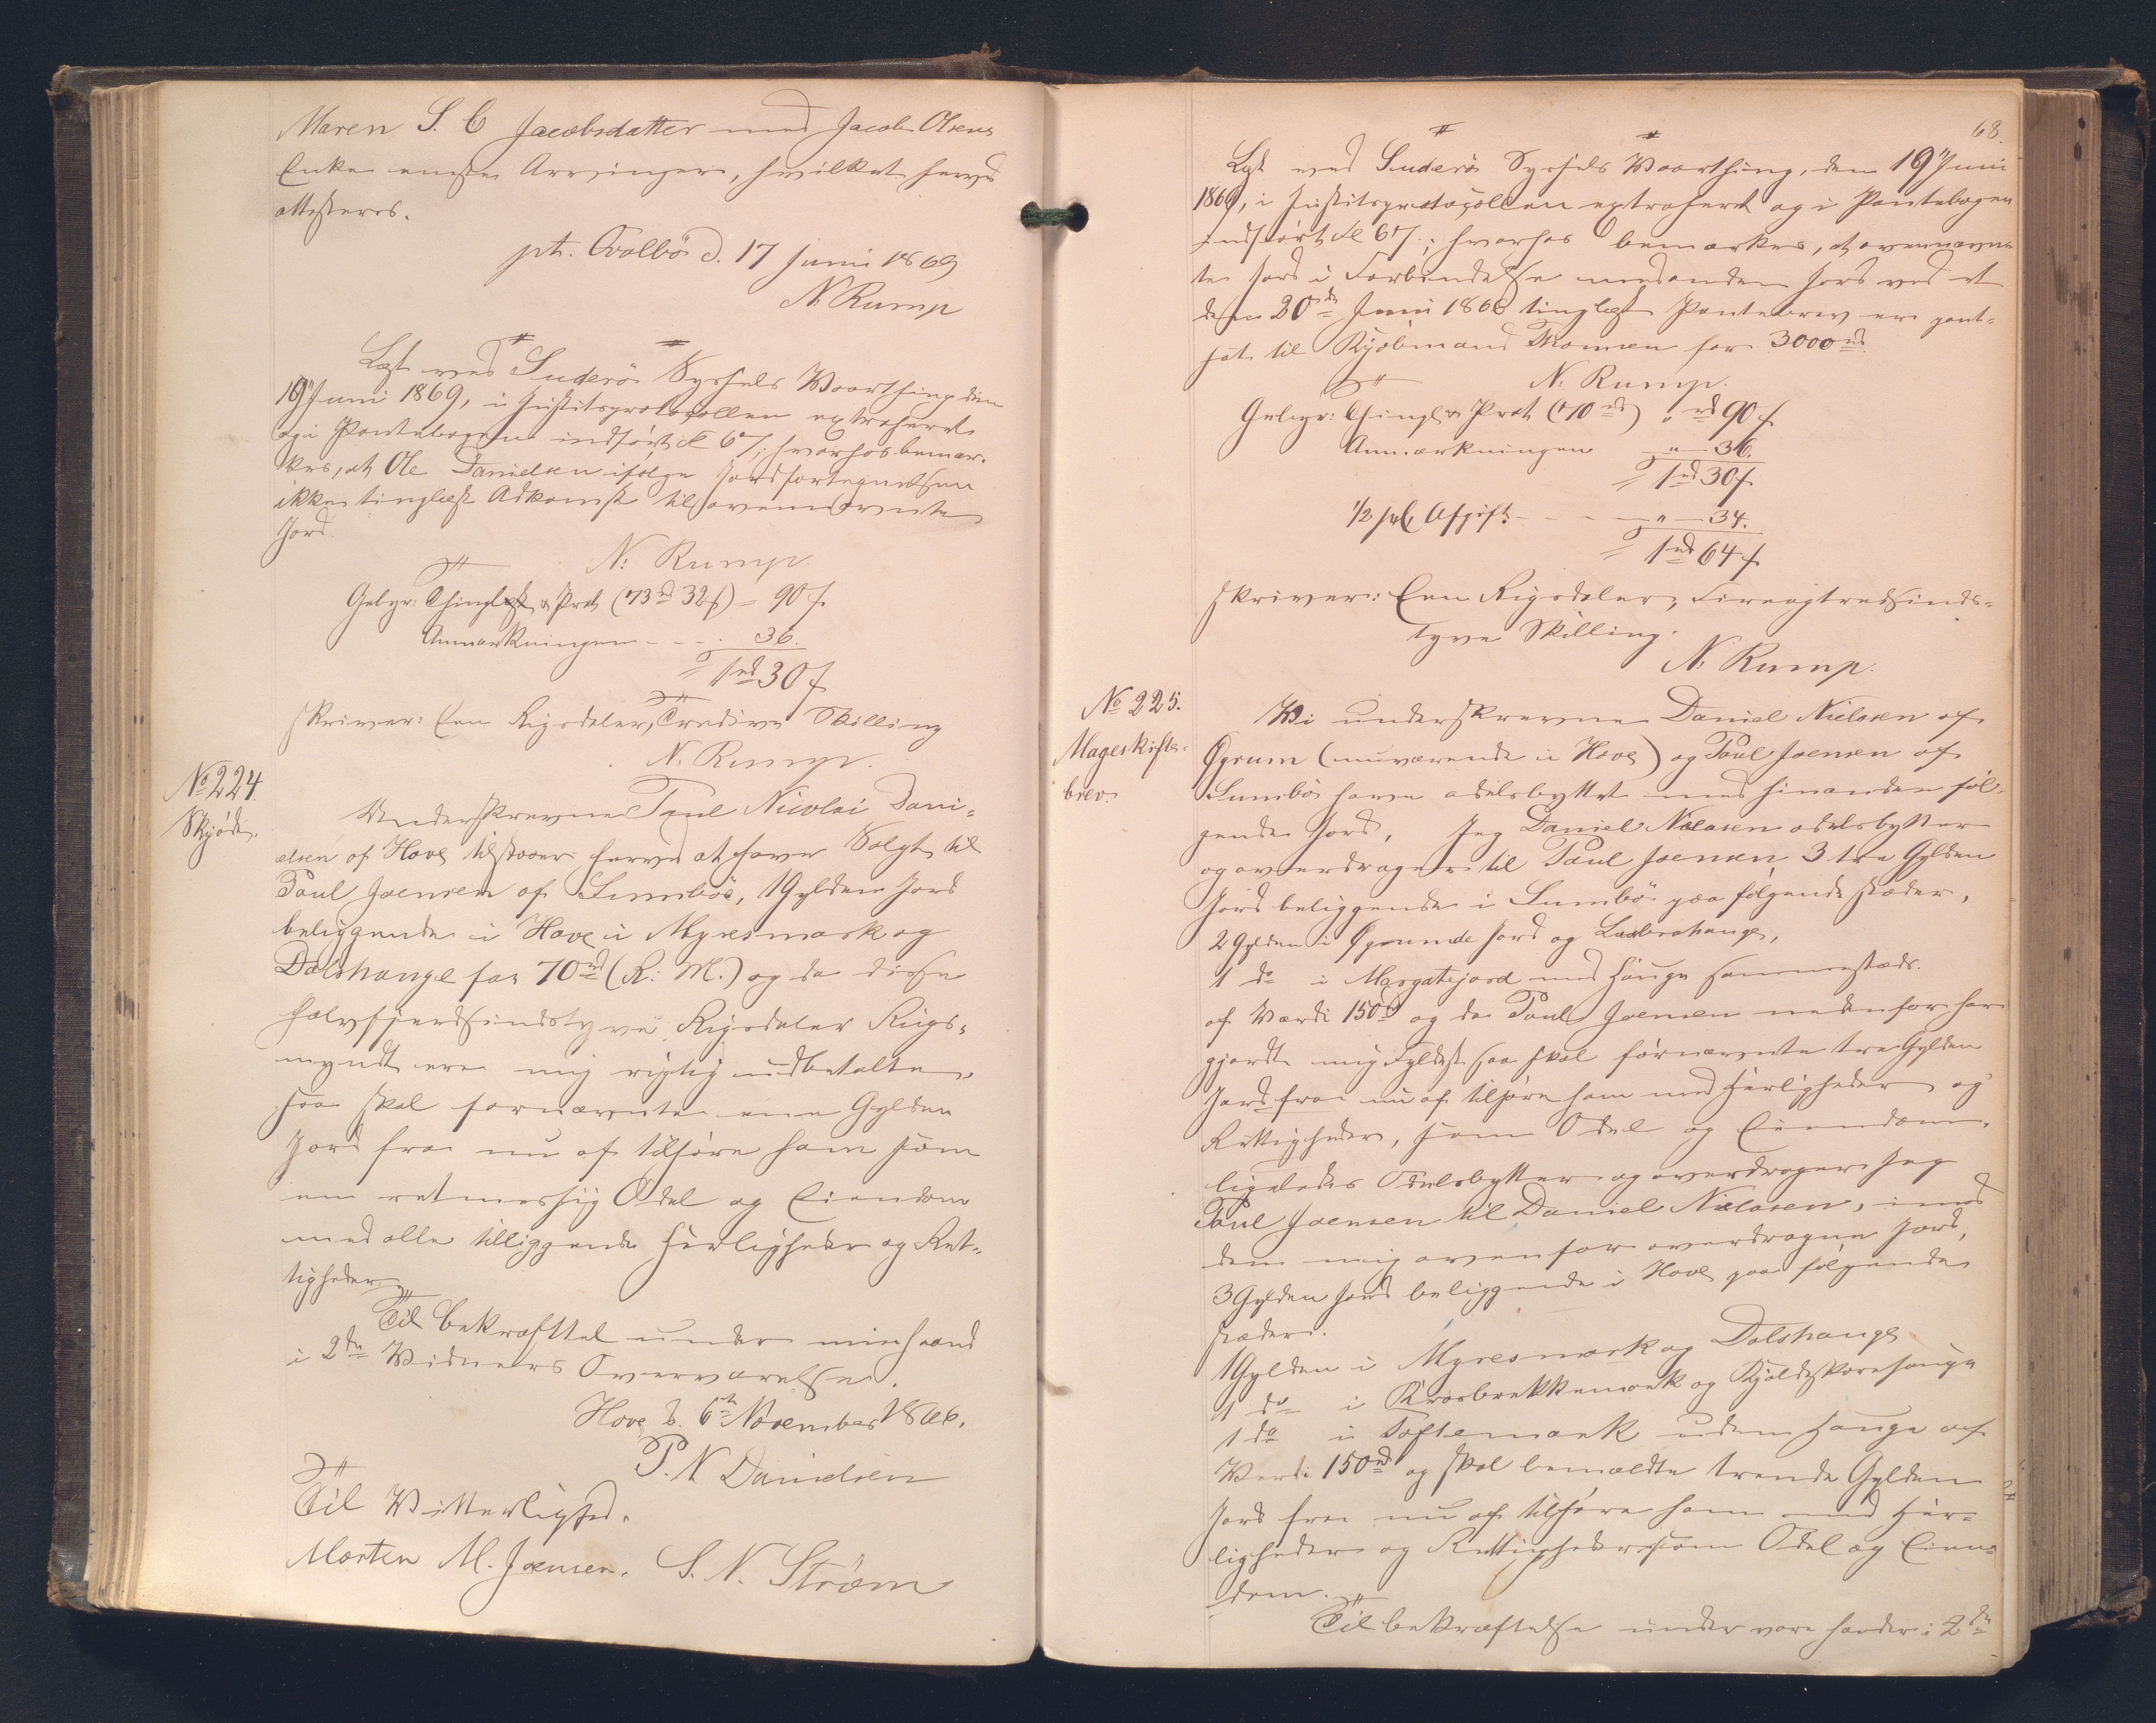 Maren S. C Jacobsdatter med Jacob Olsens
Enke eneste Arvinger, hvilket herved
attesteres.
pt. Qvalbö d. 17 Juni 1869
N. Rump
Læst ved Suderö Syssels Vaarthing den
19 Juni 1869, i Justitsprotocollen extraheret
og i Pantebogen indført fol 67; hvorhos bemær-
kes, at Ole Danielsen ifølge Jordfortegnelsen
ikke tinglæst Adkomst til ovennævnte
Jord.
N: Rump.
Gebyr: Thinglæst & Prot (73 rd 32 s) = 90 s.
Anmærkningen - - - 36.
1 rd 30 s
skriver: Een Rigsdaler, Tredive Skilling
N. Rump.
No 224.
Skjöde.
Underskrevne Poul Nicolai Dani-
elsen af Hove tilstaaer herved at have Solgt til
Poul Joensen af Sumböe, 1 Gylden Jord
beliggende i Hove i Myresmark og
Dalshauge for 70 rd (R: M.) og da disse
halvfjerdsindstyve Rigsdaler Rigs-
myndt ere mig rigtig udbetalte,
saa skal fornævnte ene Gylden
Jord fra nu af tilhøre ham som
en retmessig Odel og Eiendom
med alle tilliggende Herligheder og Ret-
tigheder.
Til bekræfttel under min Haand
i 2de Vidners Overværelse.
Hove d. 6te November 1866.
P. N Danielsen
Til Vitterlighed.
Morten M. Joensen. S. N. Ström
68.
Læst ved Suderö Syssels Vaarthing, den 19 Juni
1869, i Justitsprotocollen extraheret og i Pantebogen
indført fol 67.; hvorhos bemærkes, at ovennævn-
te Jord i Forbindelse med anden Jord ved et
den 20de Juni 1868 tinglæst Pantebrev er pant-
sat til Kjöbmand Thomsen for 3000 rd.
N. Rump.
Gebyr: Thingl & Prot (70 rd) " rd 90 s
Anmærkningen " 36.
1 rd 30 s
1/2 pCt Afgift - - - " 34.
1 rd 64 s
skriver: Een Rigsdaler, Fireogtredsinds-
tyve Skilling.
N. Rump.
No 225.
Mageskifte-
brev.
Vi underskrevne Daniel Nielsen af
Øyrum (nuværende i Hove) og Poul Joensen af
Sumbö have odelsbyttet med hinanden föl-
gende Jord, Jeg Daniel Nielsen odelsbytter
og overdrager til Poul Joensen 3 tre Gylden
Jord beliggende i Sumbö paa følgende steder,
2 Gylden i Øyrumde Jord og
1 do i Margatejord med Hauge sammesteds.
af Værdi 150 rd og da Poul Joensen nedenfor har
gjordt mig Fyldest saa skal førnævnte tre Gylden
Jord fra nu af tilhøre ham med Herligheder og
Rettigheder, som Odel og Eiendom.
ligeledes Odelsbytter og overdrager jeg
Poul Joensen til Daniel Nielsen, imod
den mig ovenfor overdragne Jord,
3 Gylden Jord beliggende i Hove paa følgende
steder.
1 Gylden i Myresmark og Dalshauge
1 do i Krosbrekkemark og Kjeldeskorehauge
1 do i Toftemark uden Hauge af
Værdi 150 rd og skal bemældte trende Gylden
Jord fra nu af tilhøre ham med Her-
ligheder og Rettigheder som Odel og Eien-
dom.
Til bekræftelse under vore hænder i 2de